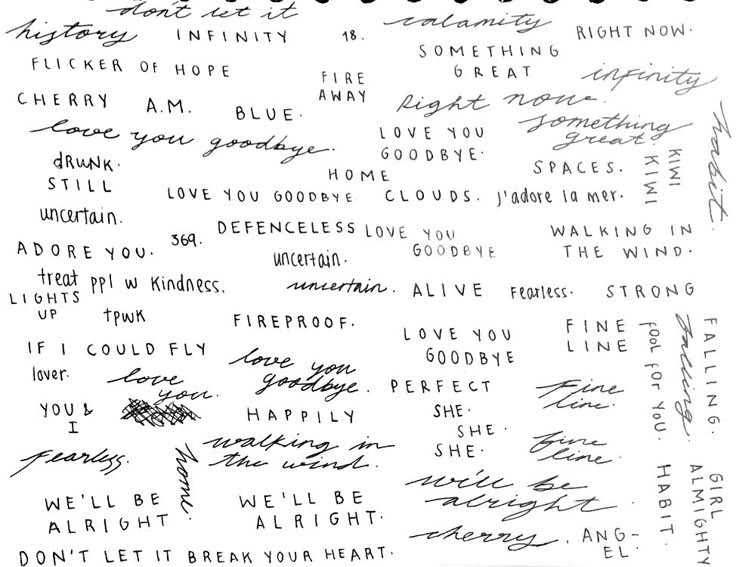 don't let it
history
INFINITY
18.
calamity
RIGHT NOW.
SOMETHING
GREAT
FLICKER OF HOPE
FIRE
AWAY
infinity
CHERRY
A.M.
BLUE.
Right now.
love you goodbye.
LOVE YOU
GOODBYE.
something
great.
habit.
KIWI
KIWI
dRUNK.
STILL
HOME
SPACES.
LOVE YOU GOODBYE
CLOUDS.
j'adore la mer.
uncertain.
ADORE YOU.
369.
DEFENCELESS
LOVE YOU
GOODBYE
WALKING IN
THE WIND.
uncertain.
treat ppl w kindness.
uncertain.
ALIVE
fearless.
STRONG
LIGHTS
UP
tpwk
FIREPROOF.
LOVE YOU
GOODBYE
FINE
LINE
FOOL FOR YOU.
falling.
FALLING.
IF I COULD FLY
love you
goodbye.
lover.
love
you.
PERFECT
fine
line.
YOU &
I
HAPPILY
SHE.
SHE.
SHE.
fine
line.
fearless.
home.
walking in
the wind.
we'll be
alright
HABIT.
GIRL
ALMIGHTY
WE'LL BE
ALRIGHT
WE'LL BE
ALRIGHT.
cherry.
ANG-
EL.
DON'T LET IT BREAK YOUR HEART.